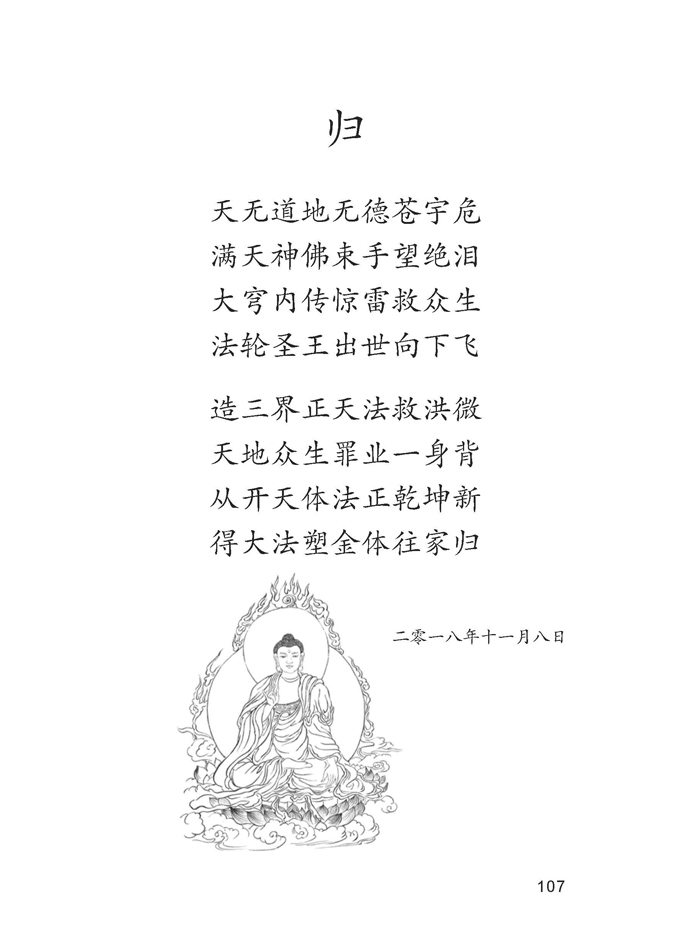 归
天无道地无德苍宇危
满天神佛束手望绝泪
大穹内传惊雷救众生
法轮圣王出世向下飞
造三界正天法救洪微
天地众生罪业一身背
从开天体法正乾坤新
得大法塑金体往家归
二零一八年十一月八日
107